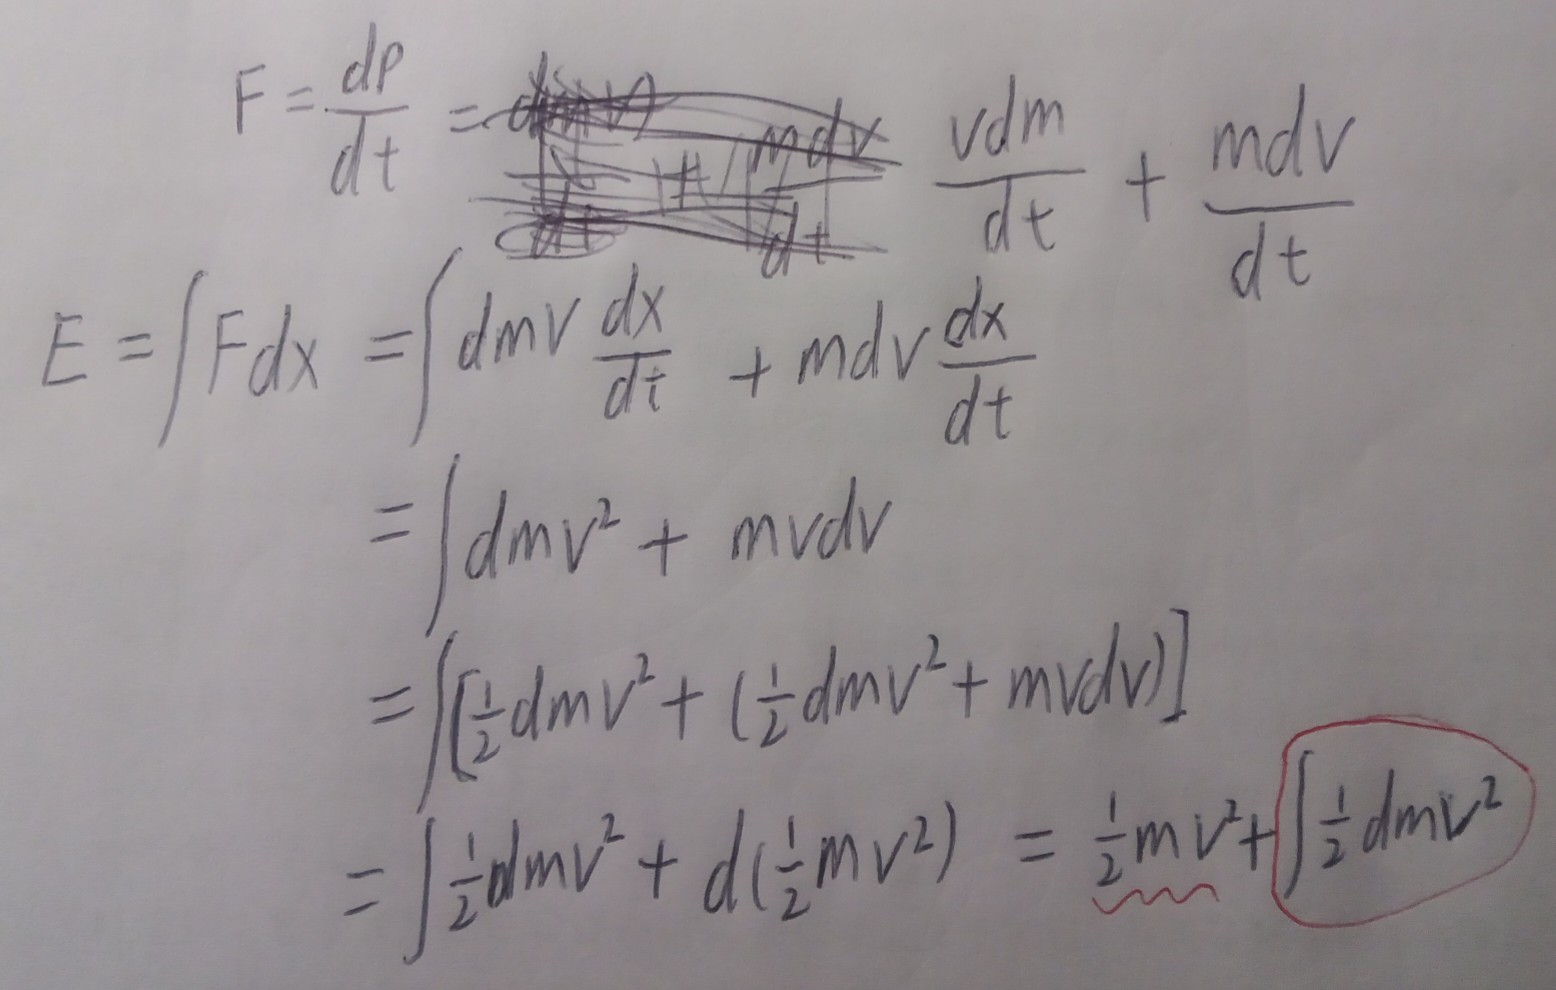 F = dP/dt = vdm/dt + mdv/dt
E = ∫Fdx = ∫dmv dx/dt + mdv dx/dt
= ∫dmv² + mvdv
= ∫[½dmv² + (½dmv² + mvdv)]
= ∫½dmv² + d(½mv²) = ½mv² + ∫½dmv²